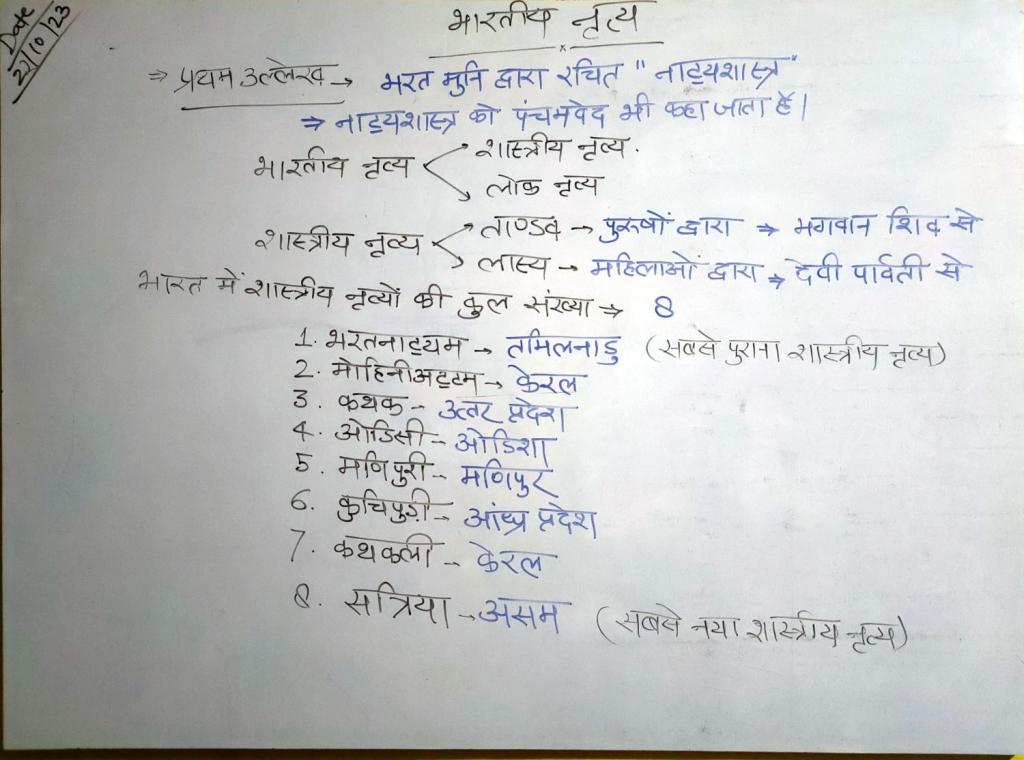 Date
22/10/23
भारतीय नृत्य
x
⇒ प्रथम उल्लेख → भरत मुनि द्वारा रचित " नाट्यशास्त्र"
⇒ नाट्यशास्त्र को पंचमवेद भी कहा जाता है।
शास्त्रीय नृत्य.
भारतीय नृत्य
लोक नृत्य
ताण्डव → पुरूषों द्वारा ⇒ भगवान शिव से
शास्त्रीय नृत्य
लास्य → महिलाओं द्वारा ⇒ देवी पार्वती से
भारत में शास्त्रीय नृत्यों की कुल संख्या ⇒ 8
1. भरतनाट्यम → तमिलनाडु (सबसे पुराना शास्त्रीय नृत्य)
2. मोहिनीअट्टम → केरल
3. कथक - उत्तर प्रदेश
4. ओडिसी - ओडिशा
5. मणिपुरी - मणिपुर
6. कुचिपुड़ी - आंध्र प्रदेश
7. कथकली - केरल
8. सत्रिया → असम (सबसे नया शास्त्रीय नृत्य)